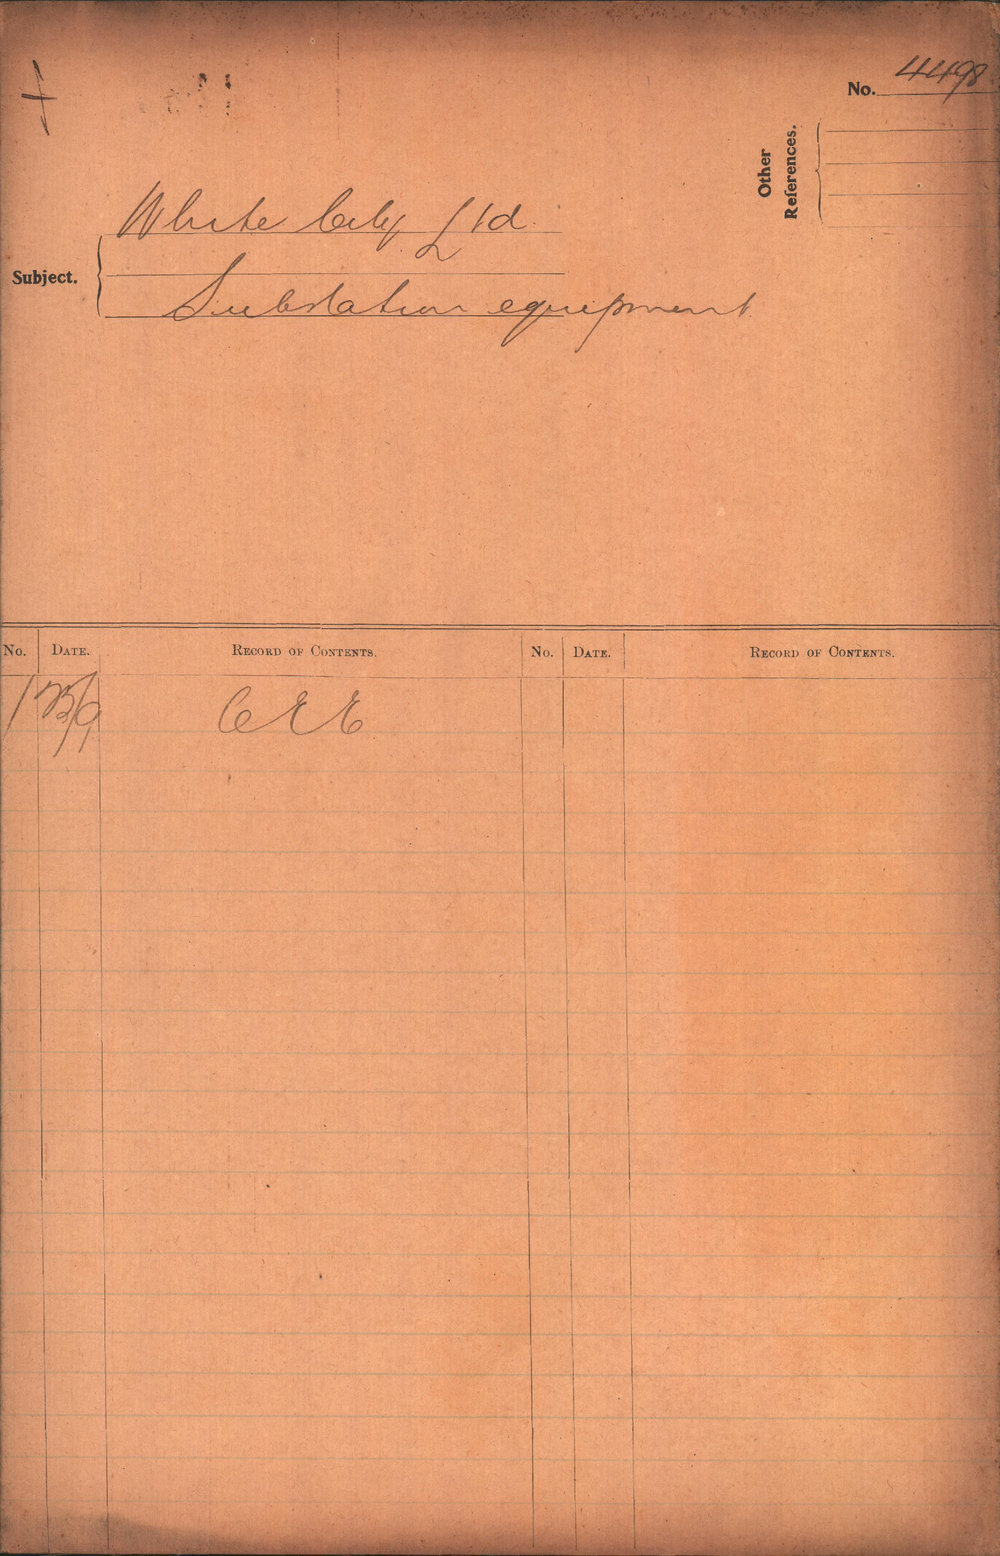 No. 4498
Other References.
White City Ltd
Subject.
Substation equipment
No. DATE. RECORD OF CONTENTS. No. DATE. RECORD OF CONTENTS.
1 25/9 CEE